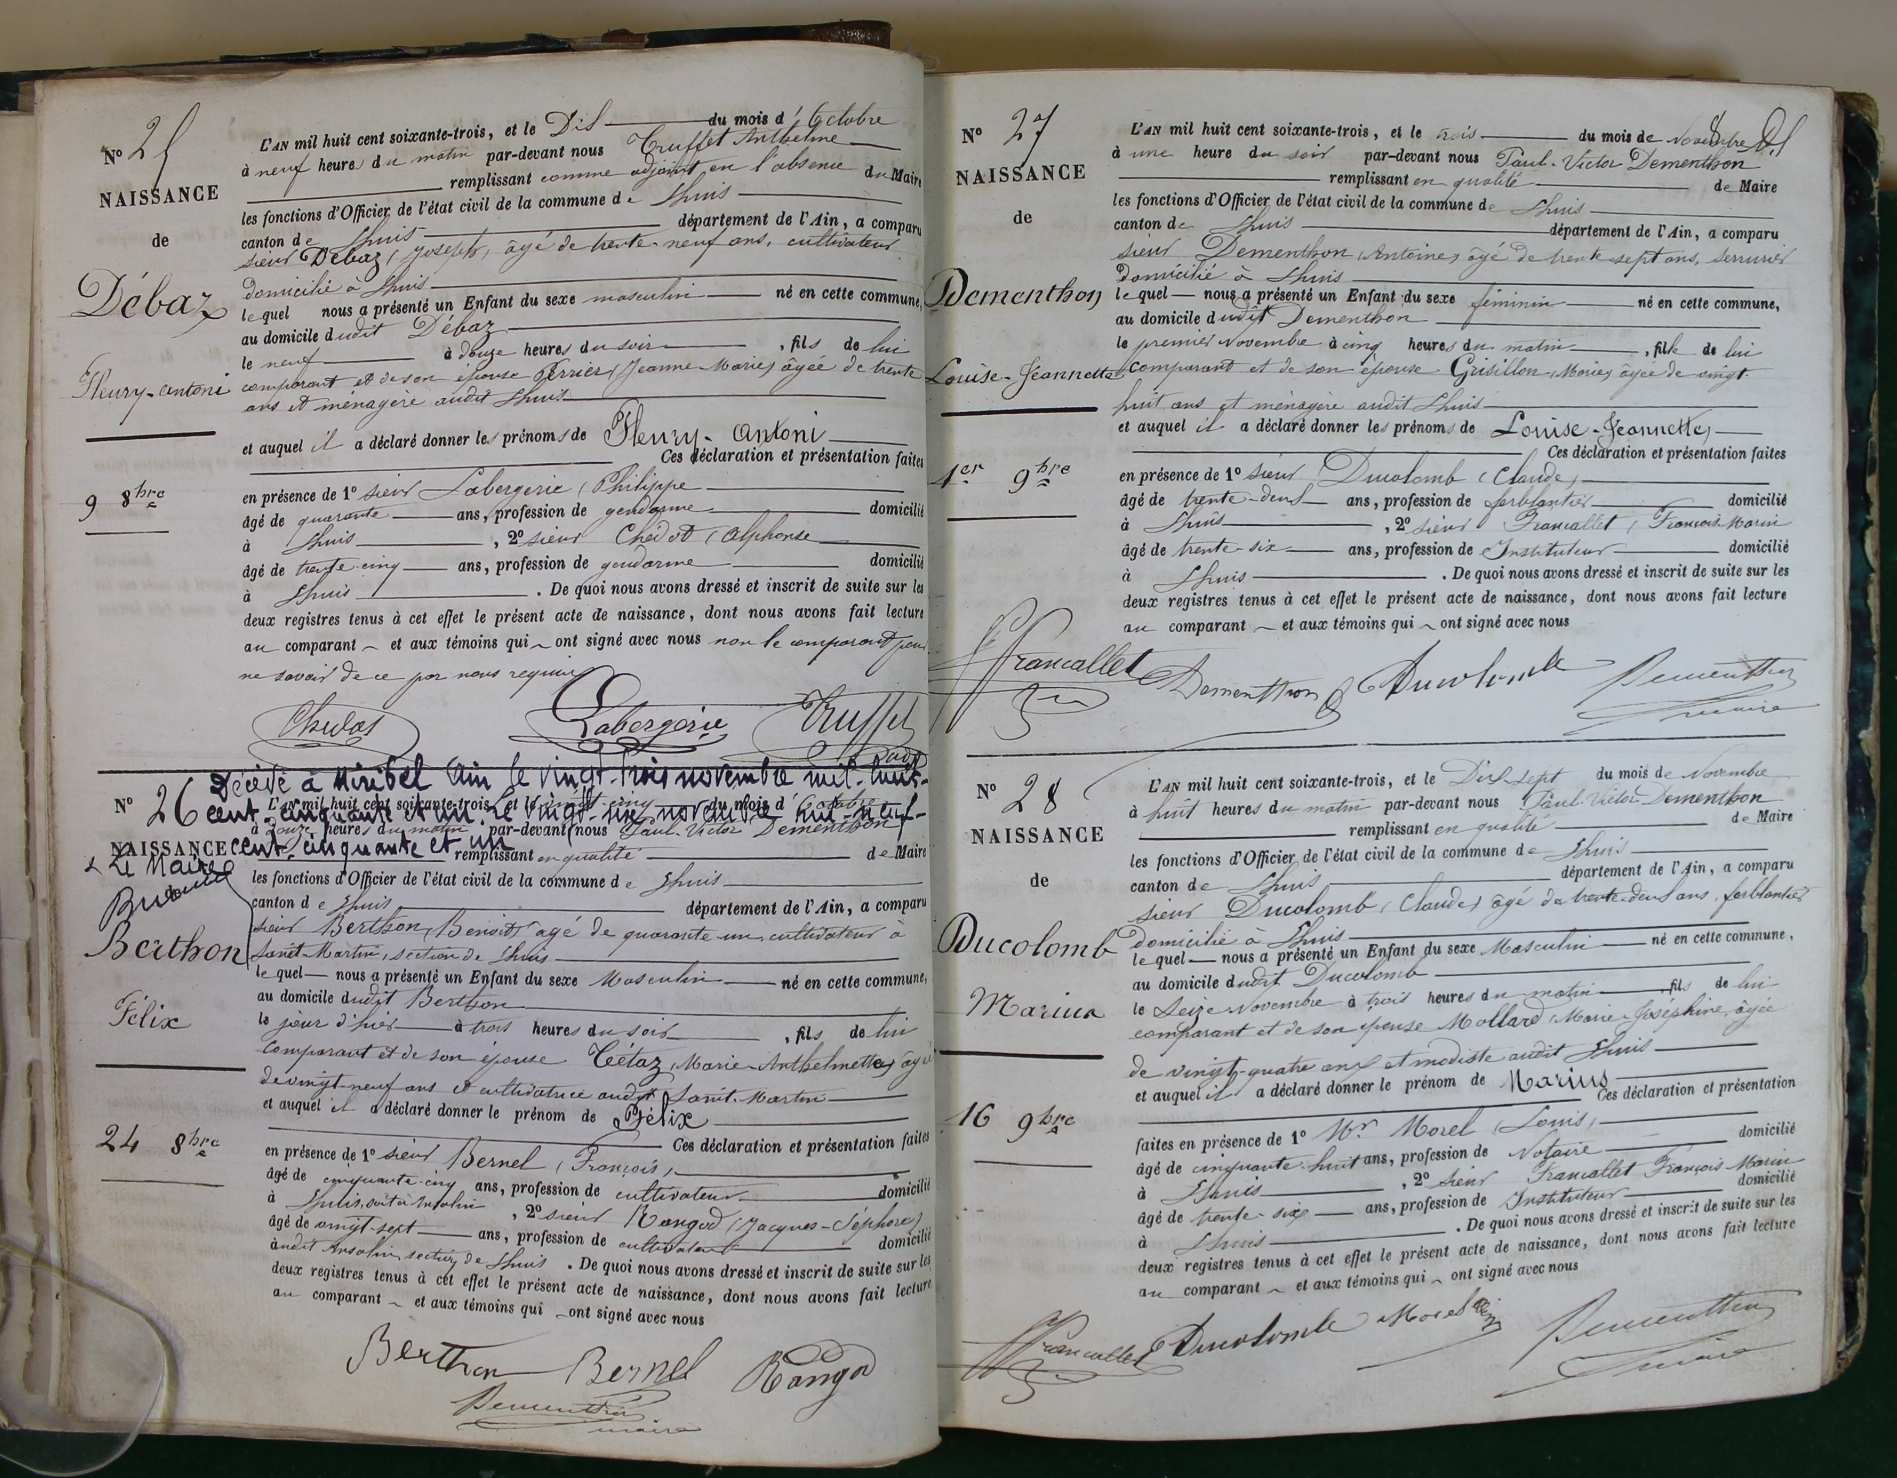 N° 25
NAISSANCE
de
Débaz
Fleury-Antoni
9 8bre
L'AN mil huit cent soixante-trois, et le Dix du mois d'Octobre
à neuf heures du matin par-devant nous Truffet Anthelme
remplissant comme adjoint en l'absence du Maire
les fonctions d'Officier de l'état civil de la commune de Lhuis
canton de Lhuis département de l'Ain, a comparu
sieur Débaz (Joseph) âgé de trente-neuf ans, cultivateur
domicilié à Lhuis
lequel nous a présenté un Enfant du sexe masculin né en cette commune,
au domicile dudit Débaz
le neuf à douze heures du soir, fils de lui
comparant et de son épouse Perrier (Jeanne-Marie) âgée de trente
ans et ménagère audit Lhuis
et auquel il a déclaré donner les prénoms de Fleury-Antoni
Ces déclaration et présentation faites
en présence de 1° sieur Labergerie (Philippe
âgé de quarante ans, profession de gendarme domicilié
à Lhuis, 2° sieur Chédot (Alphonse
âgé de trente-cinq ans, profession de gendarme domicilié
à Lhuis. De quoi nous avons dressé et inscrit de suite sur les
deux registres tenus à cet effet le présent acte de naissance, dont nous avons fait lecture
au comparant et aux témoins qui ont signé avec nous non le comparant pour
ne savoir de ce par nous requis
Labergerie Truffet
N° 26
NAISSANCE
de
Berthon
Félix
24 8bre
Décédé à Miribel Ain le vingt-trois novembre mil-huit-
cent-cinquante et un. Le vingt-six novembre mil-neuf-
cent-cinquante et un
Le Maire
L'AN mil huit cent soixante-trois, et le vingt-cinq du mois d'Octobre
à douze heures du matin par-devant nous Paul-Victor Dementhon
remplissant en qualité de Maire
les fonctions d'Officier de l'état civil de la commune de Lhuis
canton de Lhuis département de l'Ain, a comparu
sieur Berthon (Benoît) âgé de quarante-un, cultivateur à
Saint-Martin, section de Lhuis
lequel nous a présenté un Enfant du sexe Masculin né en cette commune,
au domicile dudit Berthon
le jour d'hier à trois heures du soir, fils de lui
comparant et de son épouse Tétaz (Marie-Anthelmette) âgée
de vingt-neuf ans et cultivatrice audit Saint-Martin
et auquel il a déclaré donner le prénom de Félix
Ces déclaration et présentation faites
en présence de 1° sieur Bernel (François)
âgé de cinquante-cinq ans, profession de cultivateur domicilié
à Lhuis, 2° sieur Rangod (Jacques-Séphore)
âgé de vingt-sept ans, profession de cultivateur domicilié
audit Ansolin, section de Lhuis. De quoi nous avons dressé et inscrit de suite sur les
deux registres tenus à cet effet le présent acte de naissance, dont nous avons fait lecture
au comparant et aux témoins qui ont signé avec nous
Berthon Bernel Rangod
Dementhon
maire
N° 27
NAISSANCE
de
Dementhon
Louise-Jeannette
1er 9bre
L'AN mil huit cent soixante-trois, et le trois du mois de Novembre
à une heure du soir par-devant nous Paul-Victor Dementhon
remplissant en qualité de Maire
les fonctions d'Officier de l'état civil de la commune de Lhuis
canton de Lhuis département de l'Ain, a comparu
sieur Dementhon (Antoine) âgé de trente-sept ans, serrurier
domicilié à Lhuis
lequel nous a présenté un Enfant du sexe féminin né en cette commune,
au domicile dudit Dementhon
le premier Novembre à cinq heures du matin, fille de lui
comparant et de son épouse Grisillon (Marie) âgée de vingt-
huit ans et ménagère audit Lhuis
et auquel il a déclaré donner les prénoms de Louise-Jeannette
Ces déclaration et présentation faites
en présence de 1° sieur Ducolomb (Claude)
âgé de trente-deux ans, profession de ferblantier domicilié
à Lhuis, 2° sieur Francallet (François-Marin
âgé de trente-six ans, profession de Instituteur domicilié
à Lhuis. De quoi nous avons dressé et inscrit de suite sur les
deux registres tenus à cet effet le présent acte de naissance, dont nous avons fait lecture
au comparant et aux témoins qui ont signé avec nous
Francallet Dementhon Ducolomb Dementhon
maire
N° 28
NAISSANCE
de
Ducolomb
Marius
16 9bre
L'AN mil huit cent soixante-trois, et le Dix-sept du mois de Novembre
à huit heures du matin par-devant nous Paul-Victor Dementhon
remplissant en qualité de Maire
les fonctions d'Officier de l'état civil de la commune de Lhuis
canton de Lhuis département de l'Ain, a comparu
sieur Ducolomb (Claude) âgé de trente-deux ans, ferblantier
domicilié à Lhuis
lequel nous a présenté un Enfant du sexe Masculin né en cette commune,
au domicile dudit Ducolomb
le Seize Novembre à trois heures du matin, fils de lui
comparant et de son épouse Mollard (Marie-Joséphine) âgée
de vingt-quatre ans et modiste audit Lhuis
et auquel il a déclaré donner le prénom de Marius
Ces déclaration et présentation
faites en présence de 1° Mr Morel (Louis)
âgé de cinquante-huit ans, profession de Notaire domicilié
à Lhuis, 2° sieur Francallet François Marin
âgé de trente-six ans, profession de Instituteur domicilié
à Lhuis. De quoi nous avons dressé et inscrit de suite sur les
deux registres tenus à cet effet le présent acte de naissance, dont nous avons fait lecture
au comparant et aux témoins qui ont signé avec nous
Francallet Ducolomb Morel Dementhon
maire